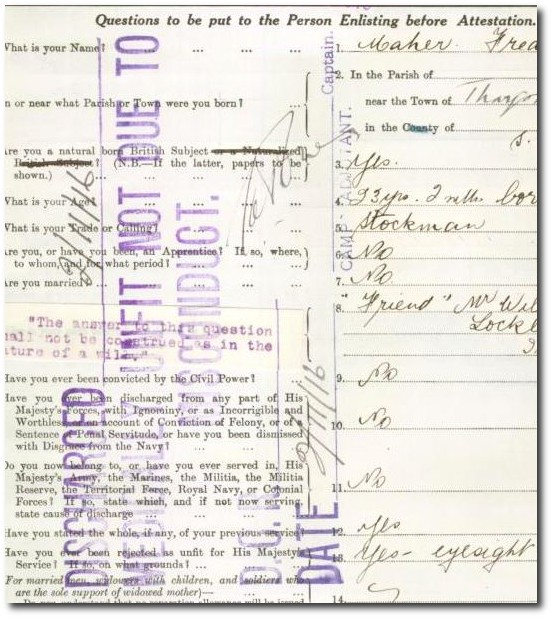 Questions to be put to the Person Enlisting before Attestation.
What is your Name? ... ... ... 1. Maher. Fred
2. In the Parish of
n or near what Parish or Town were you born? ... near the Town of
in the County of
Are you a natural born British Subject or a Naturalized
British Subject? (N.B.—If the latter, papers to be
shown.) ... ... ... 3. Yes.
What is your Age? ... ... ... 4. 23 yrs. 2 mths. bor
What is your Trade or Calling? ... ... 5. Stockman
Are you, or have you been, an Apprentice? If so, where,
to whom, and for what period? ... 6. No
Are you married? ... ... ... 7. No
"The answer to this question
hall not be construed as in the
ture of a will."
8. "Friend" Mr Wil
Have you ever been convicted by the Civil Power? ... 9. No
Have you ever been discharged from any part of His
Majesty's Forces, with Ignominy, or as Incorrigible and
Worthless, or on account of Conviction of Felony, or of a
Sentence of Penal Servitude, or have you been dismissed
with Disgrace from the Navy? ... 10. No
Do you now belong to, or have you ever served in, His
Majesty's Army, the Marines, the Militia, the Militia
Reserve, the Territorial Force, Royal Navy, or Colonial
Forces? If so, state which, and if not now serving,
state cause of discharge ... 11. No
Have you stated the whole, if any, of your previous service? 12. Yes
Have you ever been rejected as unfit for His Majesty's
Service? If so, on what grounds? ... 13. Yes - eyesight
(For married men, widowers with children, and soldiers who
are the sole support of widowed mother)—
14.
DISCHARGED
MEDICALLY UNFIT NOT DUE TO
MISCONDUCT.
DATE
2/11/16
CAMP ADJUTANT.
Captain.